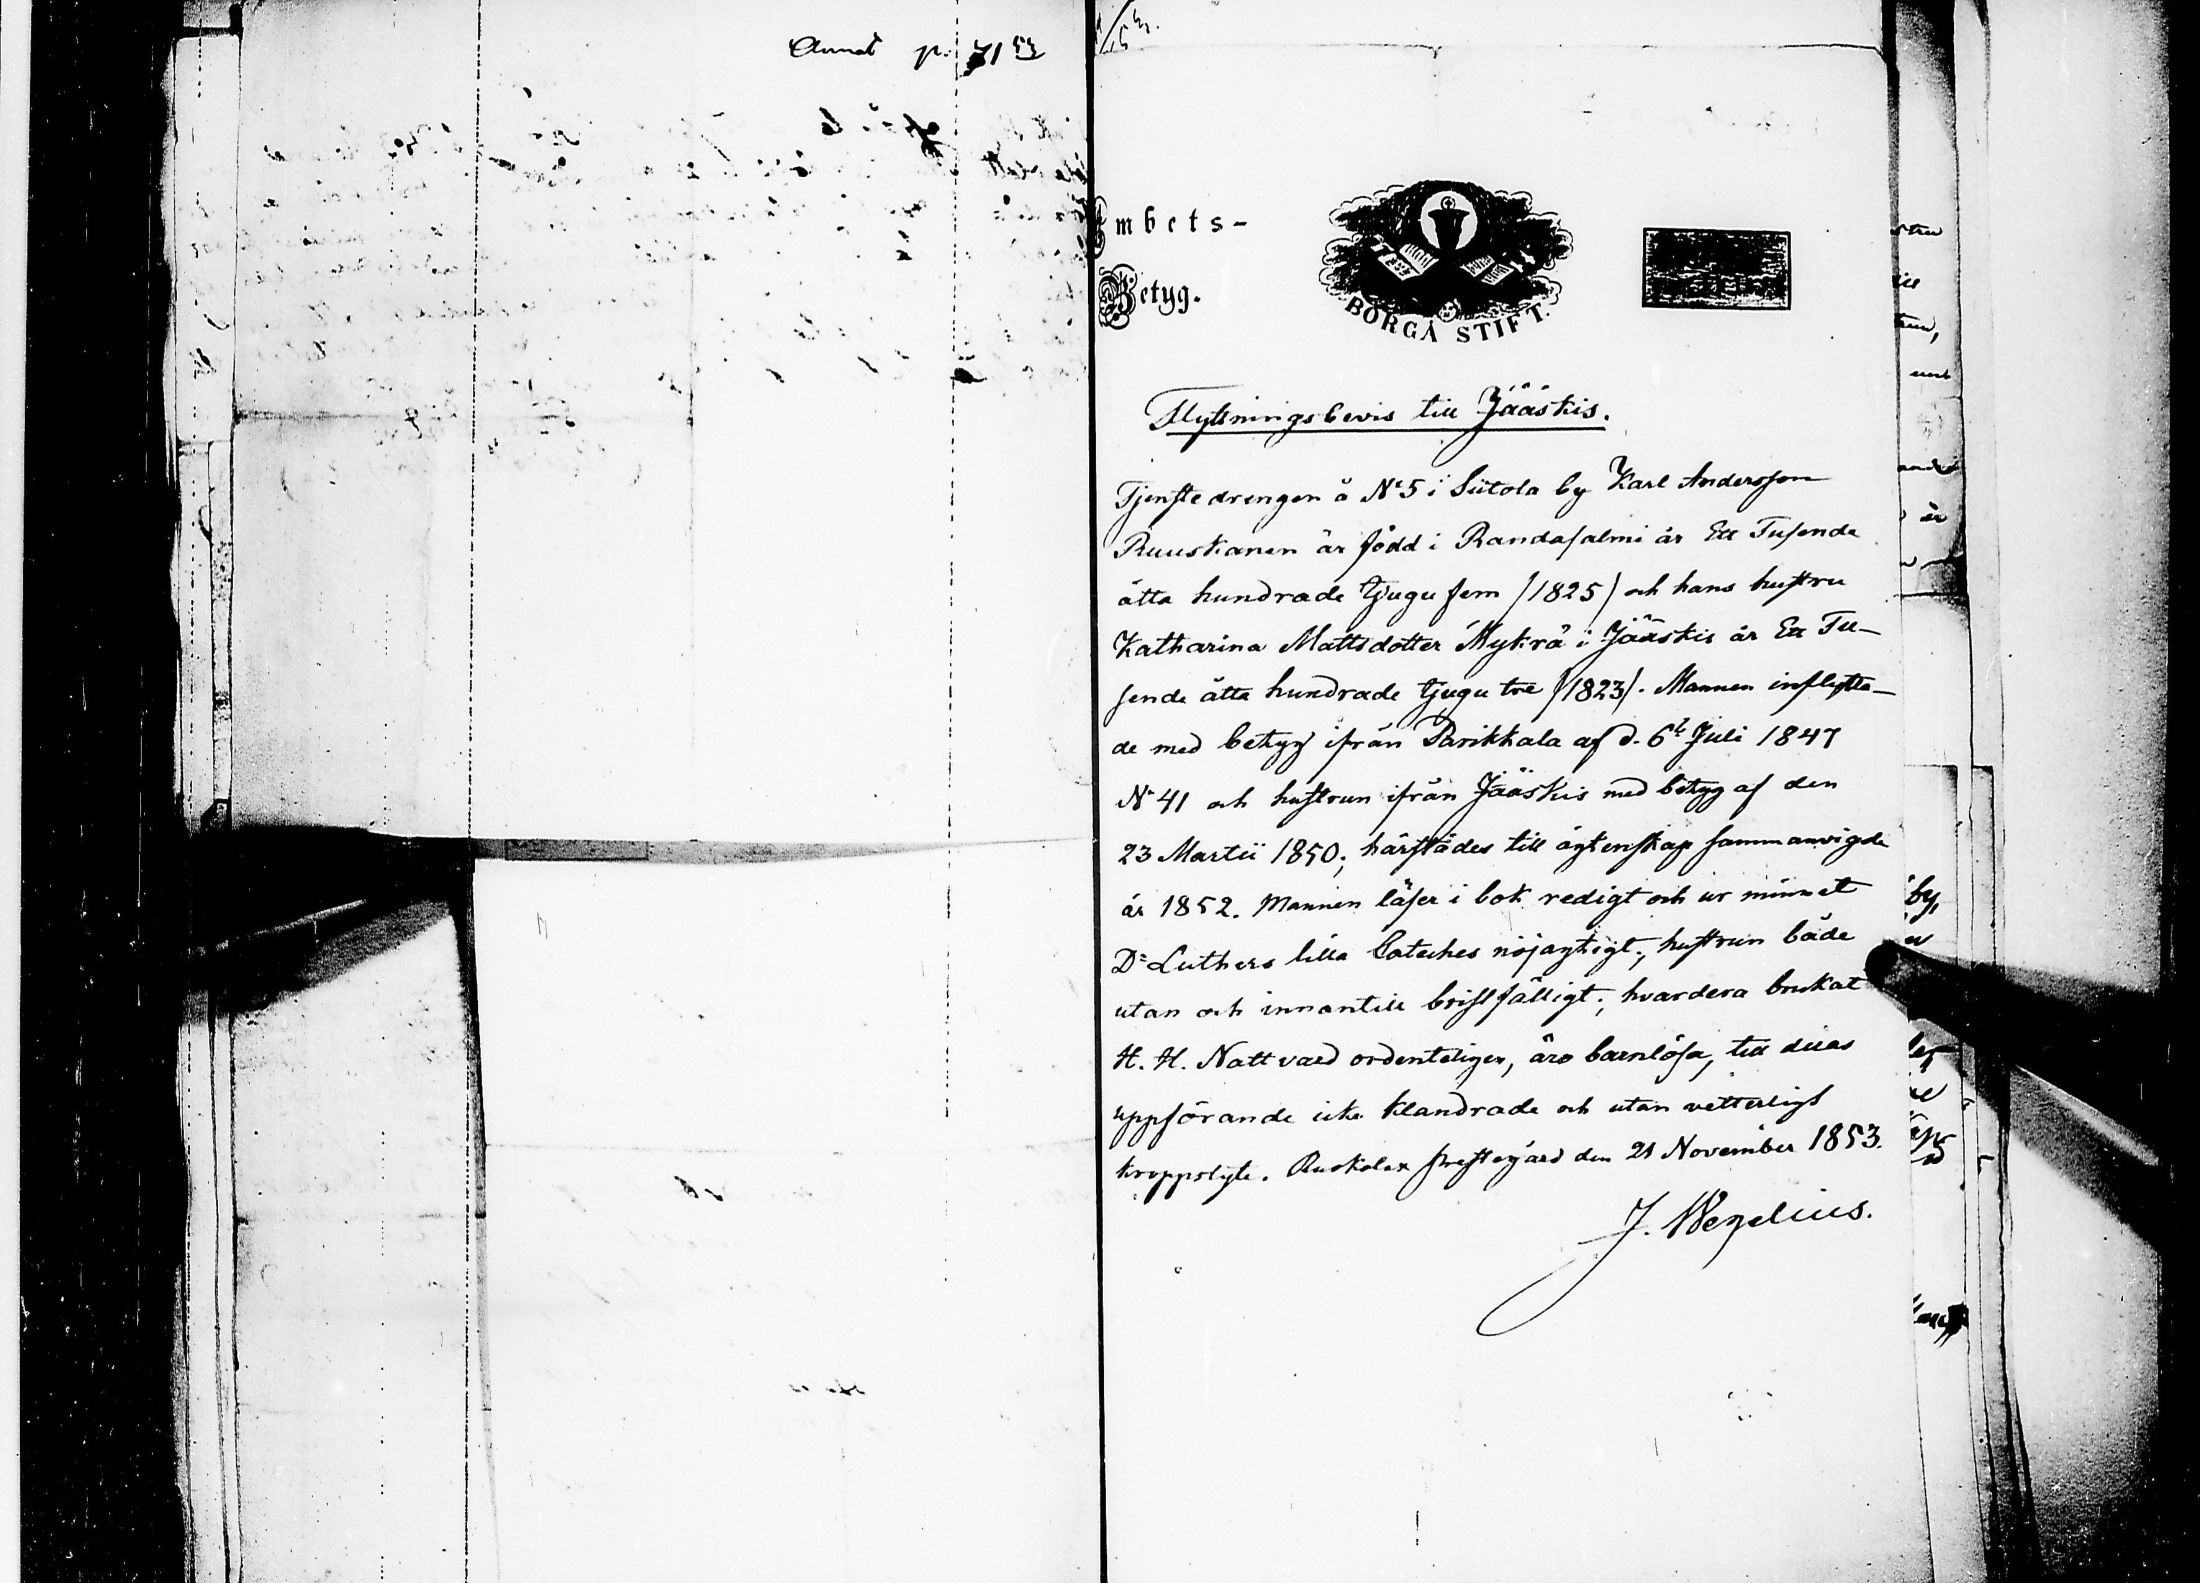 Annot p. 71 53
Embets-
Betyg.
BORGÅ STIFT.
Flyttningsbevis till Jääskis.
Tjenstedrengen å No 5 i Siitola by Karl Andersson
Ruuskanen är född i Randasalmi år Ett Tusende
åtta hundrade tjugu fem /1825/ och hans hustru
Katharina Mattsdotter Mykrä i Jääskis år Ett Tu-
sende åtta hundrade tjugu tre /1823/. Mannen inflytta-
de med betyg ifrån Parikkala af d. 6te Juli 1847
No 41 och hustrun ifrån Jääskis med betyg af den
23 Martii 1850; härstädes till ägtenskap sammanvigde
år 1852. Mannen läser i bok redigt och ur minnet
Dr Luthers lilla Cateches nöjagtigt; hustrun både
utan och innantill bristfälligt; hvardera brukat
H. H. Nattvard ordenteligen, äro barnlösa, till deras
uppförande icke klandrade och utan vetterligt
kroppslyte. Ruskeala prestegård den 21 November 1853.
J. Wegelius.